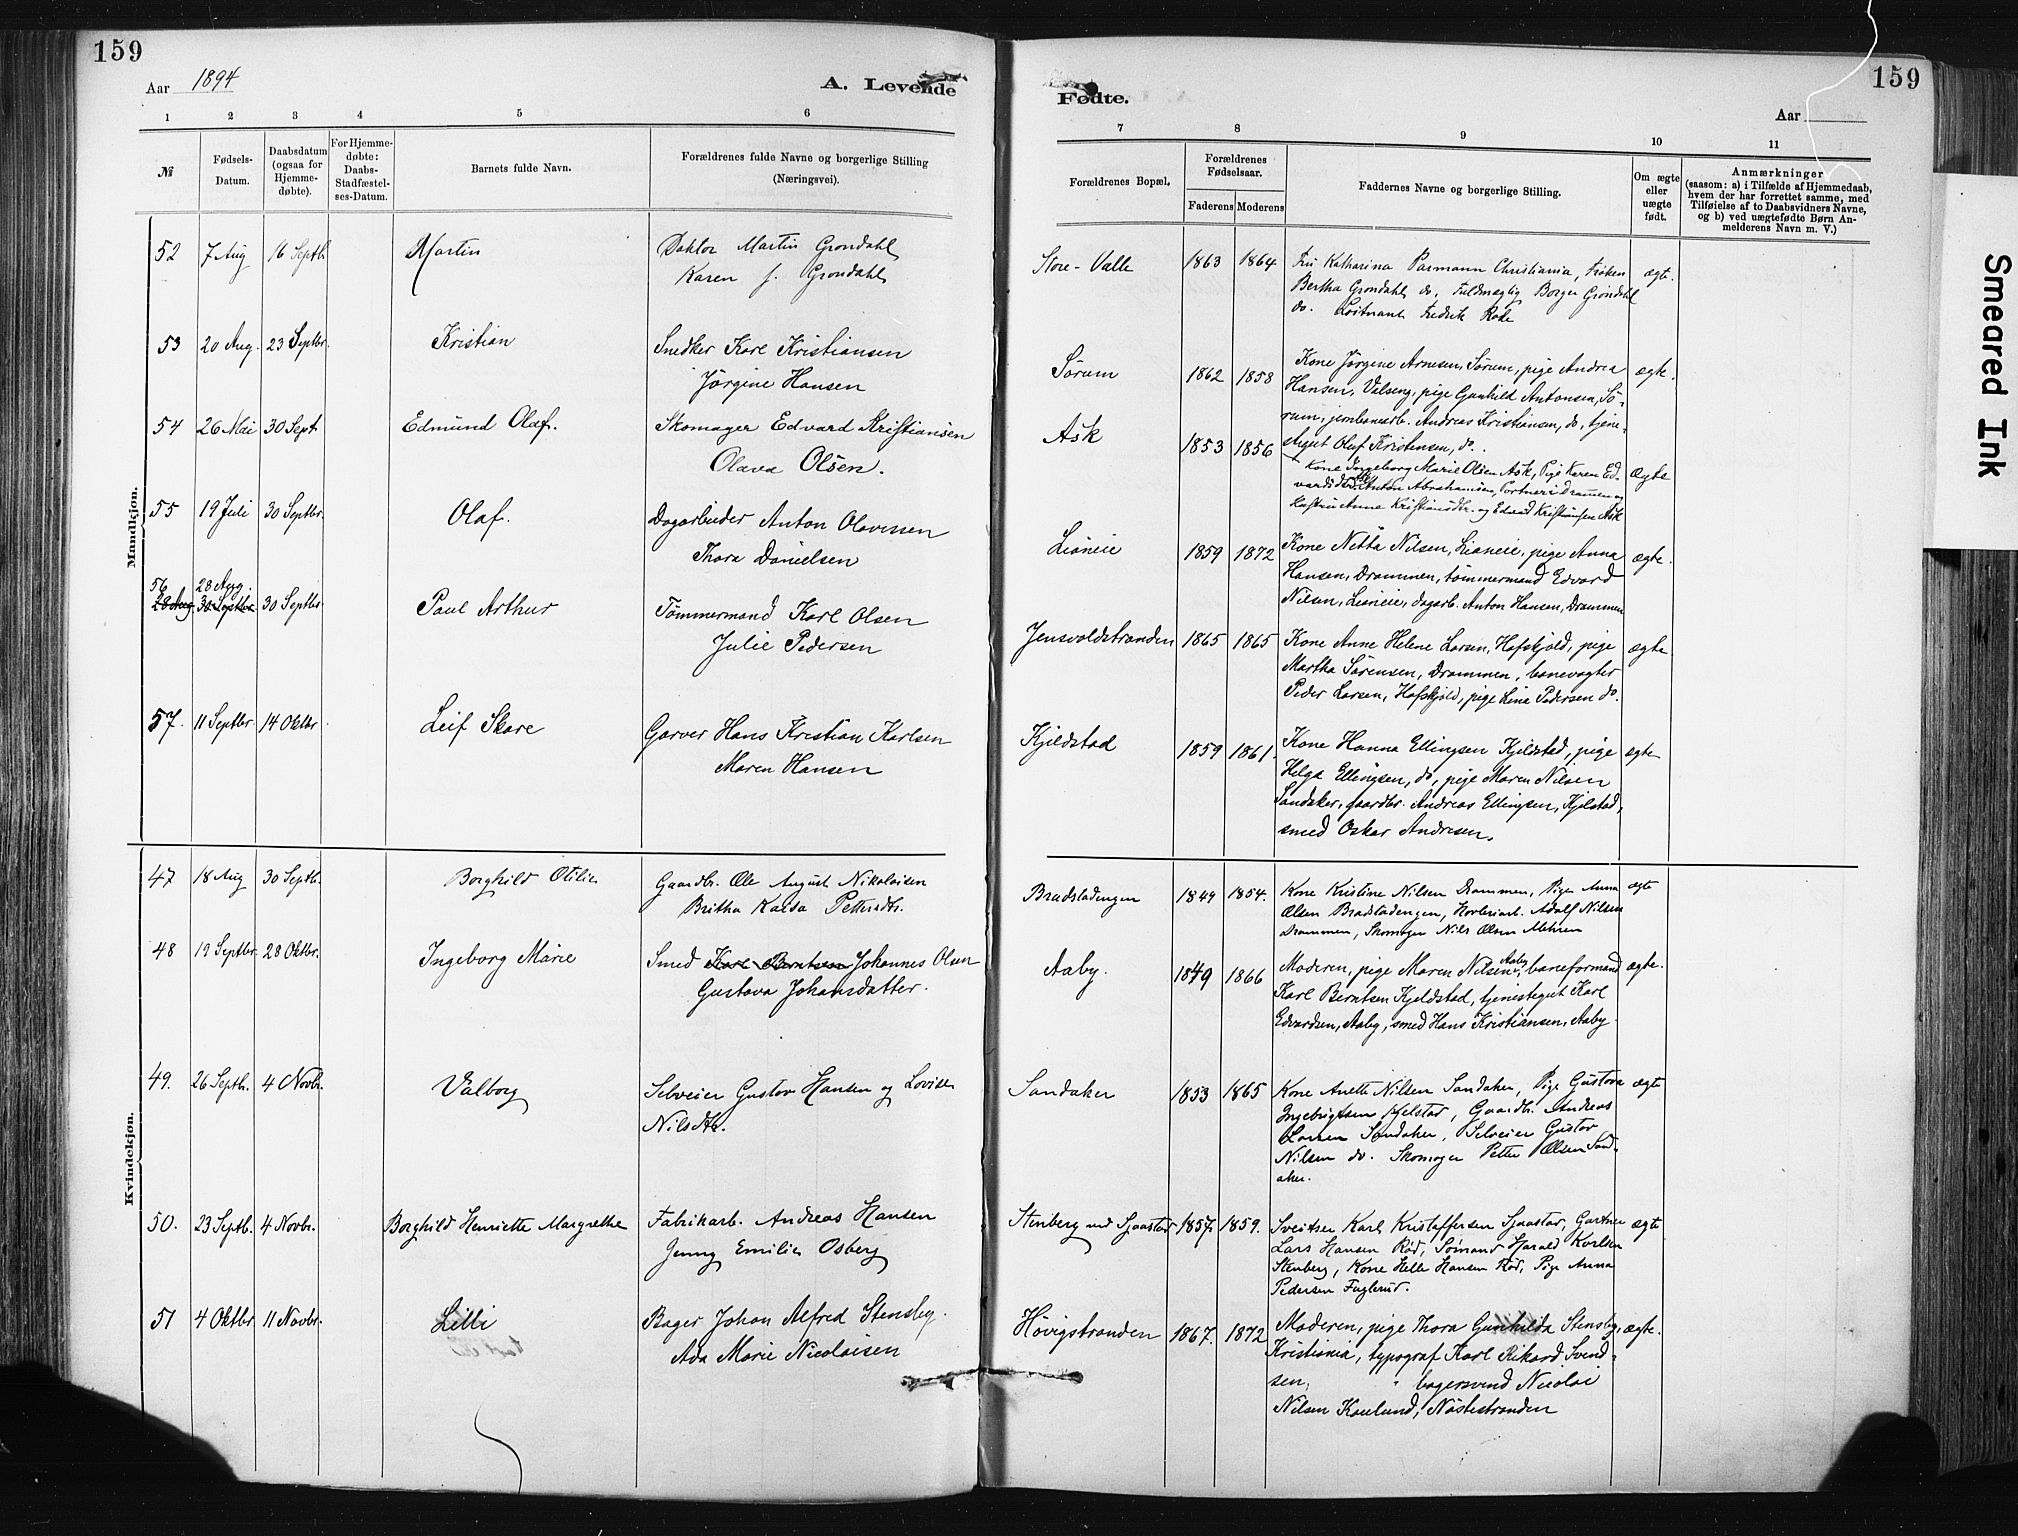 159
Aar 1894
A. Levende
1 2 3 4 5 6
№
Fødsels-Datum.
Daabsdatum (ogsaa for Hjemme-døbte).
For Hjemme-døbte: Daabs-Stadfæstel-ses-Datum.
Barnets fulde Navn.
Forældrenes fulde Navne og borgerlige Stilling
(Næringsvei).
Mandkjøn.
52 7 Aug 16 Septb Martin Doktor Martin Grondahl
Karen J. Grondahl
53 20 Aug. 23 Septbr. Kristian Snedker Karl Kristiansen
Jörgine Hansen
54 26 Mai 30 Sept. Edmund Olaf. Skomager Edvard Kristiansen
Olava Olsen.
55 19 Juli 30 Septbr. Olaf. Dagarbeider Anton Olavesen
Thora Danielsen
56 28 Aug.
28 Aug 30 Septbr. 30 Septbr Paul Arthur Tömmermand Karl Olsen
Julie Pedersen
57. 11 Septbr 14 Oktbr Leif Skare Garver Hans Kristian Karlsen
Maren Hansen
Kvindekjøn.
47 18 Aug 30 Septb. Borghild Otilie Gaardbr. Ole August Nikolaisen
Britha Kaisa Pettersdtr.
48 19 Septbr. 28 Oktbr. Ingeborg Marie Smed Karl Berntsen Johannes Olsen
Gustava Johansdatter.
49. 26 Septb. 4 Novbr. Valborg Selveier Gustav Hansen og Lovise
Nilsdtr.
50. 23 Septb. 4 Novbr. Borghild Henriette Margrethe Fabrikarb. Andreas Hansen
Jenny Emilie Osberg
51 4 Oktbr 11 Novbr. Lilli Bager Johan Alfred Stensby.
Ada Marie Nicolaisen
Fødte.
159
Aar
7 8 9 10 11
Forældrenes Bopæl.
Forældrenes Fødselsaar.
Faderens Moderens
Faddernes Navne og borgerlige Stilling.
Om ægte eller uægte født.
Anmærkninger
(saasom: a) i Tilfælde af Hjemmedaab,
hvem der har forrettet samme, med
Tilføielse af to Daabsvidners Navne,
og b) ved uægtefødte Børn An-
melderens Navn m. V.)
Store-Valle 1863 1864 Fru Katharina Parmann Christiania, Fröken ægte.
Bertha Grondahl do, Fuldmægtig Borger Grondahl
do. Löitnant Fredrik Rode
Sörum 1862 1858 Kone Jörgine Arnesen, Sörum, pige Andrea ægte.
Hansen, Valseng, pige Gunhild Antonsen, Sö-
rum, jernbanearb. Andreas Kristiansen, do, tjene-
stegut Olaf Kristensen, do.
Ask 1853 1856 Kone Ingeborg Marie Olsen Ask, Pige Karen Ed- ægte
vardsdtr Anton Abrahamsen, Portner i Drammen og
Hustru Anne Kristiansdtr. og Edvard Kristiansen Ask
Lianeie 1859 1872 Kone Netta Nilsen, Lianeie, pige Anna ægte.
Hansen, Drammen, tömmermand Edvard
Nilsen, Lianeie, dagarb. Anton Hansen, Drammen
Jensvoldstranden 1865 1865 Kone Anne Helene Larsen, Hafskjold, pige ægte
Martha Sörensen, Drammen, banevogter
Peder Larsen, Hafskjold, pige Lina Pedersen do.
Kjeldstad 1859 1861. Kone Hanna Ellingsen Kjeldstad, pige ægte
Helga Ellingsen, do, pige Maren Nilsen
Sandaker, gaardbr. Andreas Ellingsen, Kjelstad,
smed Oskar Andresen.
Bradstadengen 1849 1854. Kone Kristine Nilsen Drammen, Pige Anna ægte
Olsen Bradstadengen, Adolf Nilsen
Drammen, Skomager Nils Olsen Mehren
Aaby. 1849 1866 Moderen, pige Maren Nilsen Aaby, baneformand ægte.
Karl Berntsen Kjeldstad, tjenestegut Karl
Edvardsen, Aaby, smed Hans Kristiansen, Aaby.
Sandaker 1853 1865 Kone Anette Nilsen Sandaker, Pige Gustava ægte
Ingebrigtsen Kjelstad, Gaardbr. Andreas
Larsen Sandaker, Selveier Gustav
Nilsen do. Skomager Petter Olsen Sand-
aker.
Stenberg und Sjaastad 1857. 1859. Sveitser Karl Kristaffersen Sjaastad, Gartner ægte
Lars Hansen Röd, Sömand Harald Karlsen
Stenberg, Kone Helle Hansen Röd, Pige Anna
Pedersen Fuglerud.
Hövigstranden 1867. 1872 Moderen, pige Thora Gunhilda Stensby, ægte.
Kristiania, typograf Karl Rikard Svend-
sen, " bagersvend Nicolai
Nilsen Kaulund, Nöstestranden
Smeared Ink